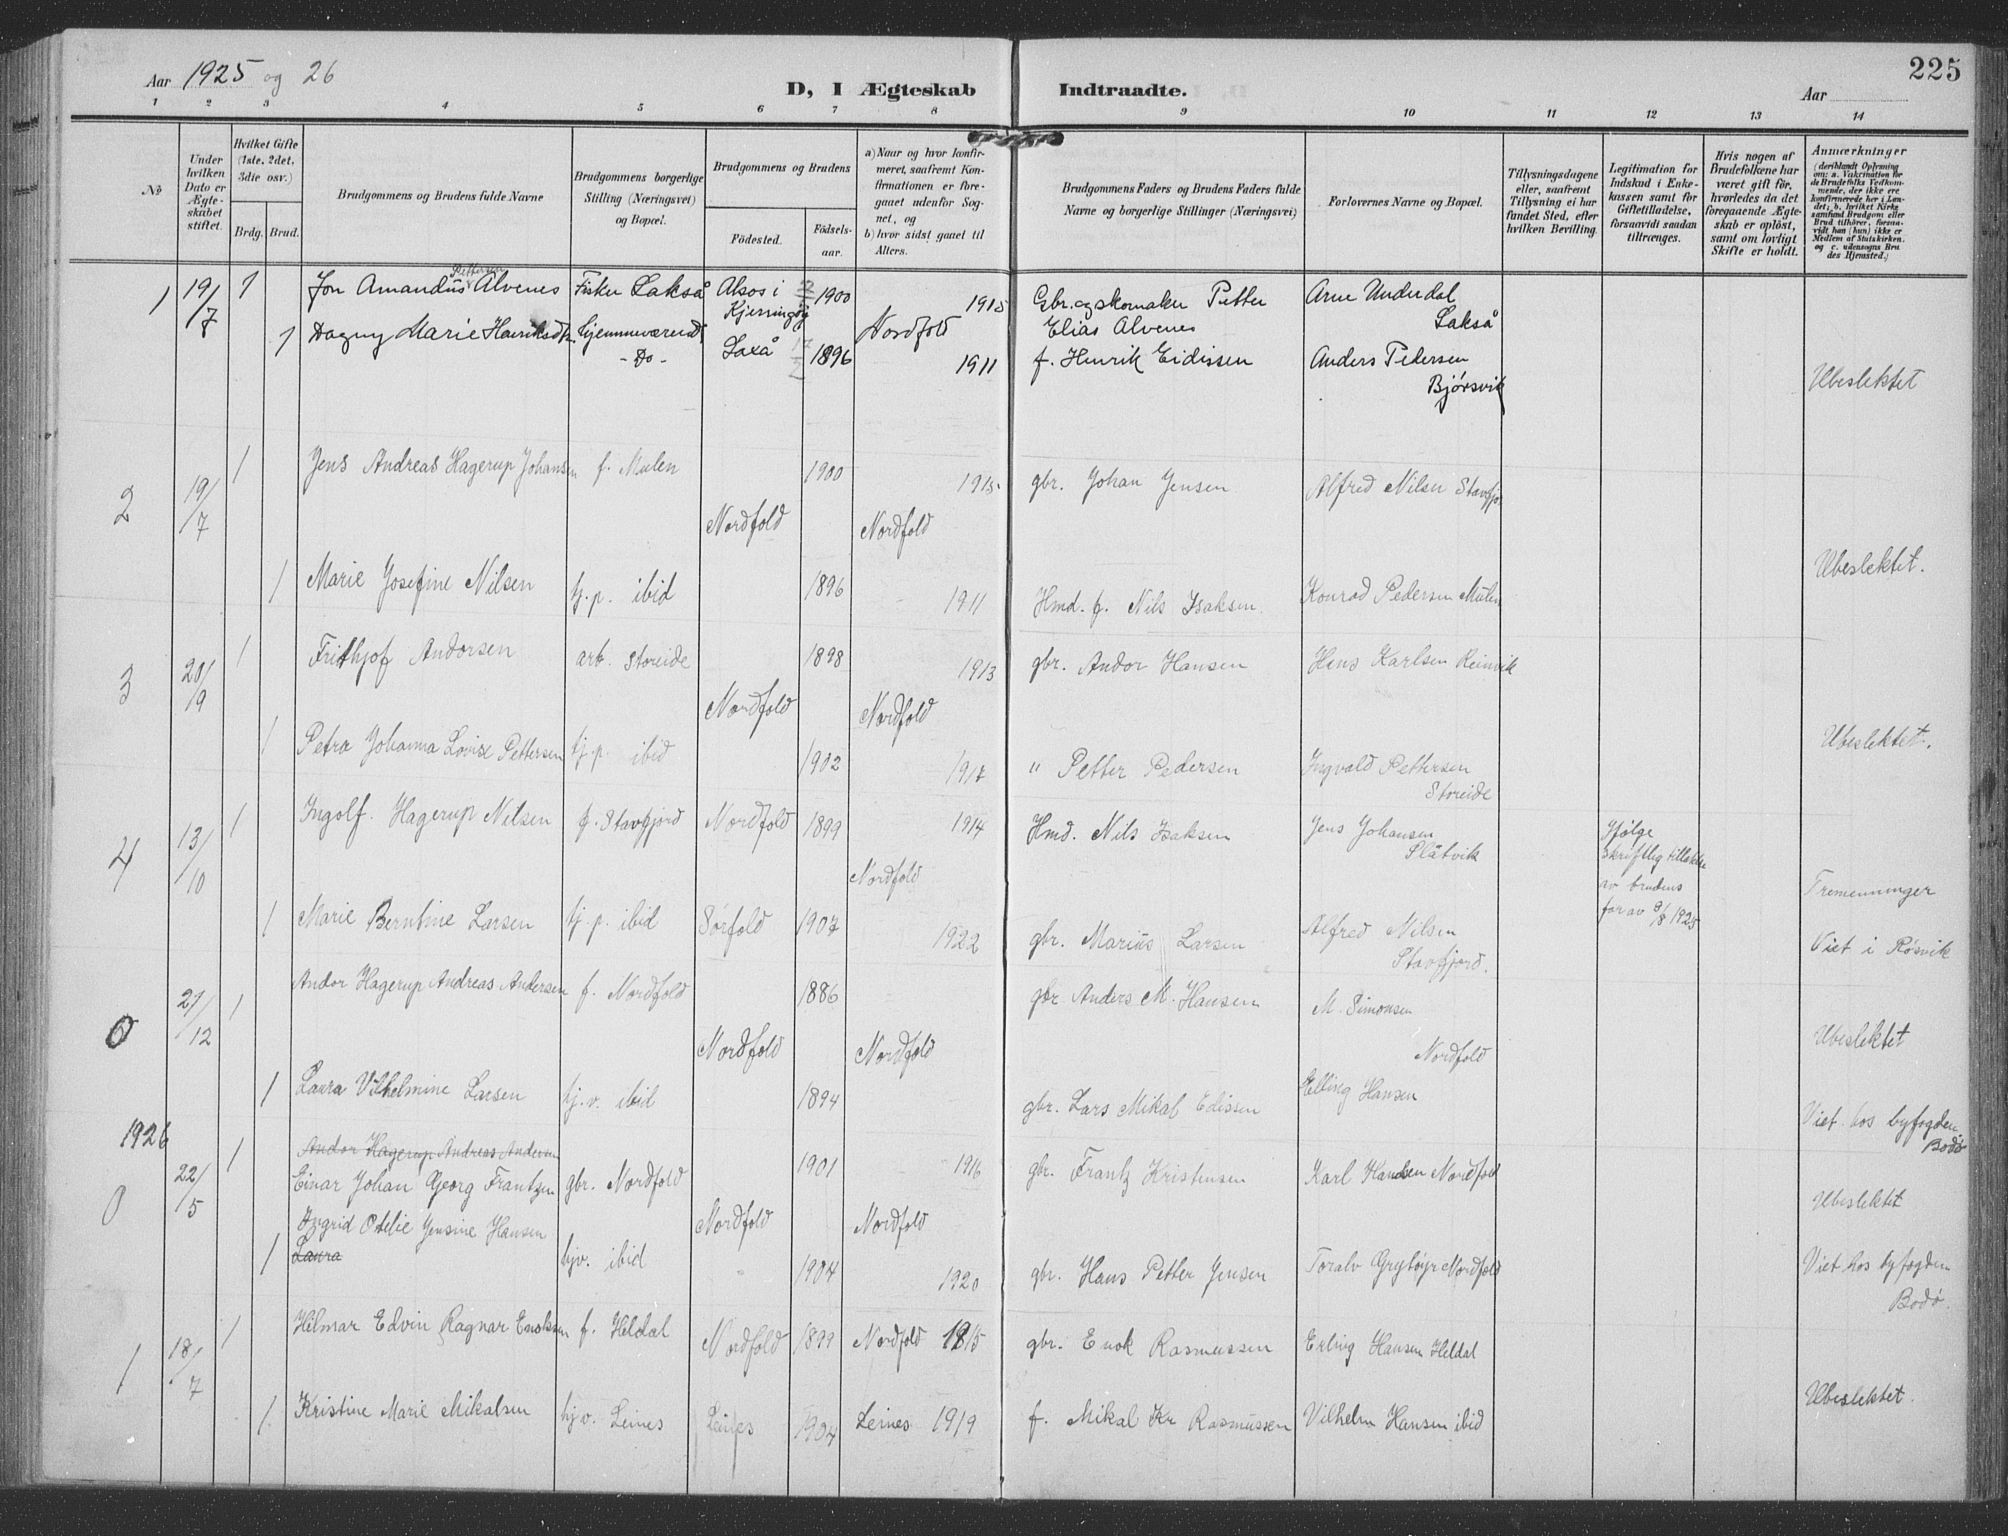 Aar 1925 og 26
D, I Ægteskab Indtraadte.
Aar
225
1 2 3 4 5 6 7 8 9 10 11 12 13 14
No
Under hvilken Dato er Ægteskabet stiftet.
Hvilket Gifte (1ste, 2det, 3die osv.)
Brdg. Brud.
Brudgommens og Brudens fulde Navne
Brudgommens borgerlige Stilling (Næringsvei) og Bopæl.
Brudgommens og Brudens
Födested.
Födselsaar.
a) Naar og hvor konfirmeret, saafremt Konfirmationen er foregaaet udenfor Sognet, og
b) hvor sidst gaaet til Alters.
Brudgommens Faders og Brudens Faders fulde Navne og borgerlige Stillinger (Næringsvei)
Forlovernes Navne og Bopæl.
Tillysningsdagene eller, saafremt Tillysning ei har fundet Sted, efter hvilken Bevilling.
Legitimation for Indskud i Enkekassen samt for Giftetilladelse, forsaavidt saadan tiltrænges.
Hvis nogen af Brudefolkene har været gift för, hvorledes da det foregaaende Ægteskab er oplöst, samt om lovligt Skifte er holdt.
Anmærkninger (deriblandt Oplysning om: a. Vakcination for de Brudefolks Vedkommende, der ikke ere konfirmerede her i Landet; b. hvilket Kirkesamfund Brudgom eller Brud tilhörer, forsaavidt han (hun) ikke er Medlem af Statskirken, og c. udensogns Brudes Hjemsted.)
1 19/7 1 Jon Amandus Pettersen Alvenes Fisker Lakså Alsos i Kjerringøy 1900 1915 Gbr. og skomaker Petter Elias Alvenes Arne Underdal Lakså
1 Dagny Marie Henriksdtr. hjemmeværende - Do - Laxå 1896 Nordfold 1911 f. Henrik Eidissen Anders Pedersen Bjørsvik Ubeslektet
2 19/7 1 Jens Andreas Hagerup Johansen f. Mulen 1900 1915 gbr. Johan Jensen Alfred Nilsen Stavfjo.
Nordfold Nordfold
1 Marie Josefine Nilsen tj. p. ibid 1896 1911 Hmd. f. Nils Isaksen. Konrad Pedersen Mulen Ubeslektet.
3 20/9 1 Frithjof Andorsen arb. Storeide 1898 1913 gbr. Andor Hansen Hens Karlsen Reinvik
Nordfold Nordfold
1 Petra Johanna Lovise Pettersen tj. p. ibid 1902 1917 " Petter Pedersen Ingvald Pettersen Storeide Ubeslektet.
4 13/10 1 Ingolf. Hagerup Nilsen f. Stavfjord Nordfold 1899 1914 Hmd. Nils Isaksen Jens Johansen Slåtvik
Nordfold
Ifølge skriftlig tillatelse av brudens far av 9/8 1925
Tremenninger
1 Marie Berntine Larsen tj. p. ibid Sørfold 1907 1922 gbr. Marius Larsen Alfred Nilsen Stavfjord. Viet i Røsvik
0 27/12 1 Andor Hagerup Andreas Andersen f. Nordfold 1886 gbr. Anders M. Hansen M. Simonsen Nordfold
Nordfold Nordfold Ubeslektet
1 Laura Vilhelmine Larsen tj. v. ibid 1894 gbr. Lars Mikal Edissen Elling Hansen
Viet hos byfogden Bodø
1926
Andor Hagerup Andreas Andersen
0 22/5 1 Einar Johan Georg Frantzen gbr. Nordfold 1901 1916 gbr. Frantz Kristensen Karl Hansen Nordfold
Nordfold Nordfold Ubeslektet
Ingrid Otelie Jensine Hansen
1 Laura hjv. ibid " 1904 1920 gbr. Hans Petter Jensen Toralv Grytøyr Nordfold Viet hos byfogden Bodø.
1 18/7 1 Hilmar Edvin Ragnar Enoksen f. Heldal Nordfold 1899 Nordfold 1915 gbr. Enok Rasmussen Erling Hansen Heldal
1 Kristine Marie Mikalsen hjv. Leines Leines 1904 Leines 1919 f. Mikal Kr Rasmussen Vilhelm Hansen ibid Ubeslektet.